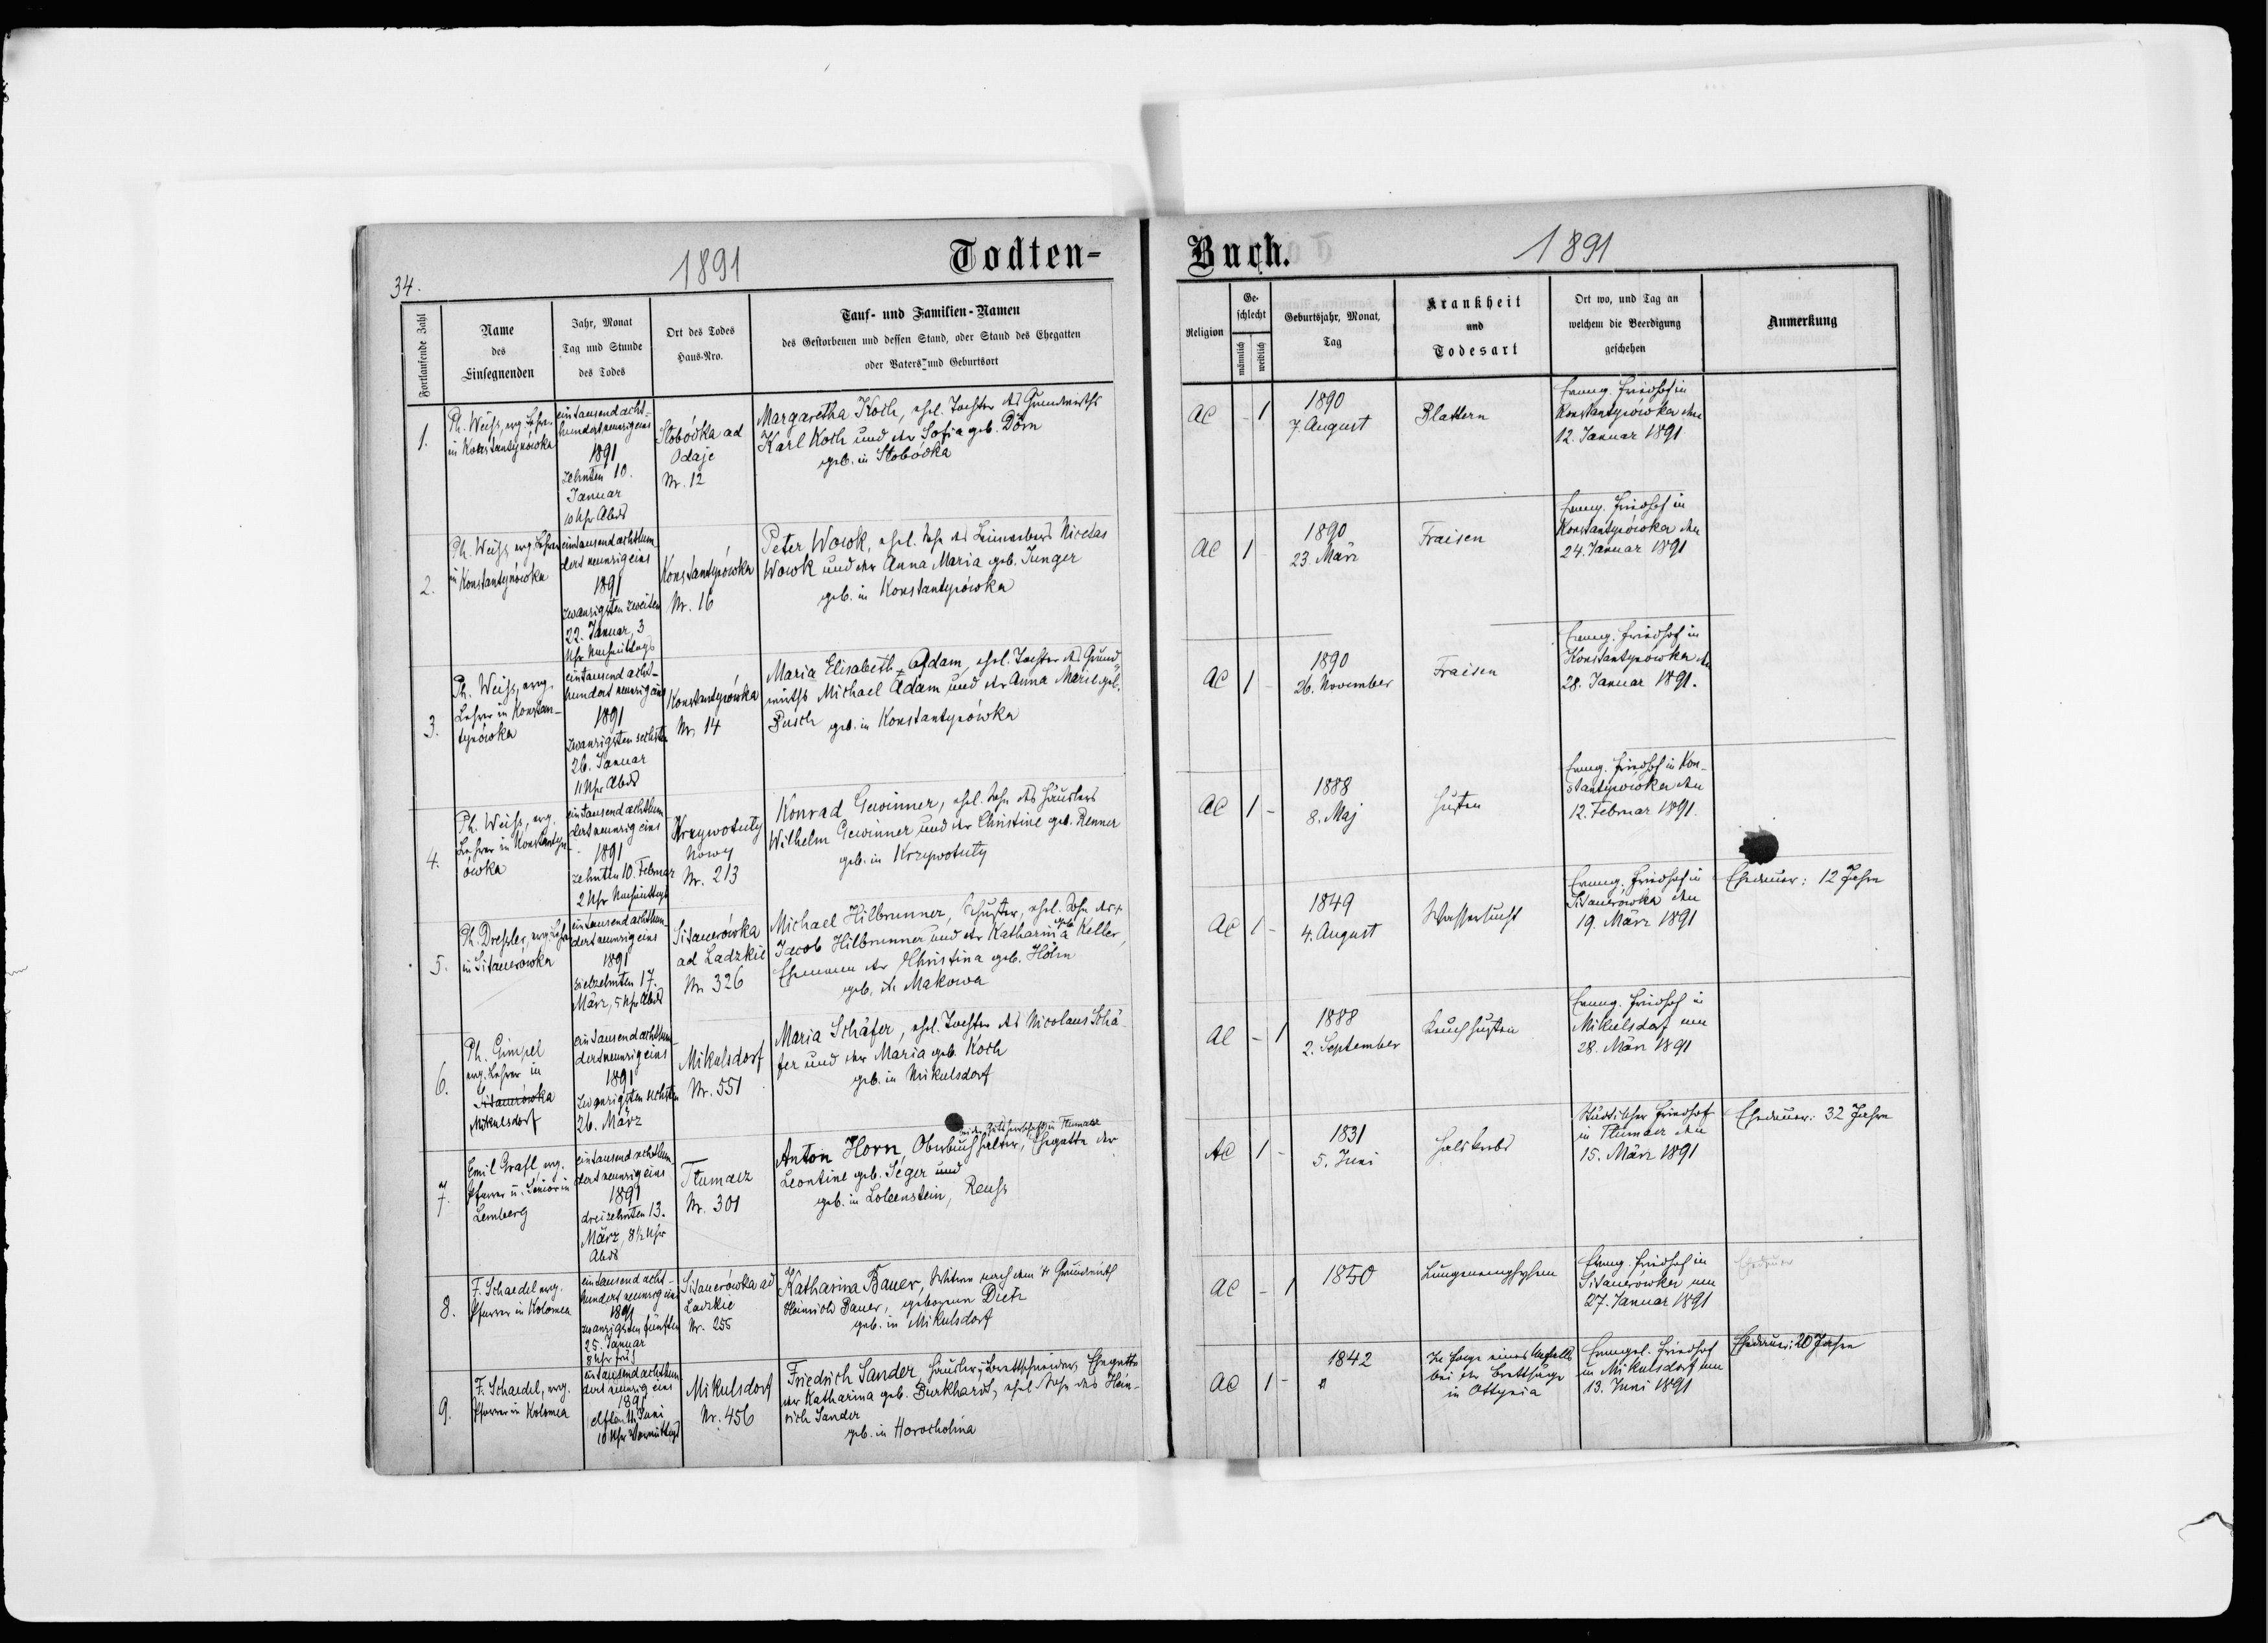 34.
1891
Todten-
Fortlaufende Zahl
Name
des
Einsegnenden
Jahr, Monat
Tag und Stunde
des Todes
Ort des Todes
Haus-Nro.
Tauf- und Familien-Namen
des Gestorbenen und dessen Stand, oder Stand des Ehegatten
oder Vaters und Geburtsort
1.
Ph. Weiss, evg. Lehrer
in Konstantynówka
eintausend acht-
hundert neunzig eins
1891
zehnten 10.
Januar
10 Uhr Abds
Slobódka ad
Odaje
Nr. 12
Margaretha Koch, ehel. Tochter des Grundwirths
Karl Koch und der Sofia geb. Dörn
geb. in Slobódka
2.
Ph. Weiss evg. Lehrer
in Konstantynówka
eintausend achthun
dert neunzig eins
1891
zwanzigsten zweiten
22. Januar, 3
Uhr Nachmittags
Konstantynówka
Nr. 16
Peter Wowk, ehel. Sohn des Nicetas
Wowk und der Anna Maria geb. Junger
geb. in Konstantynówka
3.
Ph. Weiss, evg.
Lehrer in Konstan-
tynówka
eintausend acht-
hundert neunzig eins
1891
zwanzigsten sechsten
26. Januar
11 Uhr Abds
Konstantynówka
Nr. 14
Maria Elisabeth Adam, ehel. Tochter des Grund
wirths Michael Adam und der Anna Marie geb.
Pusch geb. in Konstantynówka
4.
Ph. Weiss, evg.
Lehrer in Konstantyn
ówka
eintausend achthun
dert neunzig eins
1891
zehnten 10. Februar
2 Uhr Nachmittags
Krzywotuly
Nowy
Nr. 213
Konrad Gewinner, ehel. Sohn des Häuslers
Wilhelm Gewinner und der Christine geb. Renner
geb. in Krzywotuly
5.
Ph. Dressler, evg. Lehrer
in Sitauerowka
eintausend achthun
dert neunzig eins
1891
siebzehnten 17.
März, 5 Uhr Abds
Sitauerówka
ad Ladzkie
Nr. 326
Michael Hilbrunner, Schuster, ehel. Sohn des +
Jacob Hilbrunner und der Katharina geb. Keller,
Ehemann der Christina geb. Höhn
geb. in Makowa
6.
Ph. Gimpel
evg. Lehrer in
Sitauerówka
Mikulsdorf
eintausend achthun
dert neunzig eins
1891
zwanzigsten sechsten
26. März
Mikulsdorf
Nr. 551
Maria Schäfer, ehel. Tochter des Nicolaus Schä-
fer und der Maria geb. Koch
geb. in Mikulsdorf
7.
Emil Grafl, evg.
Pfarrer u. Senior in
Lemberg
eintausend achthun
dert neunzig eins
1891
dreizehnten 13.
März, 8½ Uhr
Abds
Tlumacz
Nr. 301
bei der Gutsherrschaft in Tlumacz
Anton Horn, Oberbuchhalter, Ehegatte der
Leontine geb. Seger und
geb. in Lobenstein, Reuss
8.
F. Schaedel evg.
Pfarrer in Kolomea
eintausend acht-
hundert neunzig eins
1891
zwanzigsten fünften
25. Januar
8 Uhr früh
Sitauerówka ad
Ladzkie
Nr. 255
Katharina Bauer, Witwe nach dem + Grundwirth
Heinrich Bauer, geborene Dietz
geb. in Mikulsdorf
9.
F. Schaedel, evg.
Pfarrer in Kolomea
eintausend achthun
dert neunzig eins
1891
elften 11. Juni
10 Uhr Vormittags
Mikulsdorf
Nr. 456
Friedrich Sander, Häusler u. Brettschneider, Ehegatte
der Katharina geb. Burkhardt, ehel. Sohn des Hein-
rich Sander
geb. in Horocholina
Buch.
1891
Religion
Ge-
schlecht
männlich
weiblich
Geburtsjahr, Monat,
Tag
Krankheit
und
Todesart
Ort wo, und Tag an
welchem die Beerdigung
geschehen
Anmerkung
AC - 1
1890
7. August
Blattern
Evang. Friedhof in
Konstantynówka den
12. Januar 1891
AC 1 -
1890
23. März
Fraisen
Evang. Friedhof in
Konstantynówka den
24. Januar 1891
AC 1 -
1890
26. November
Fraisen
Evang. Friedhof in
Konstantynówka den
28. Januar 1891.
AC 1 -
1888
8. Maj
Husten
Evang. Friedhof in Kon-
stantynówka den
12. Februar 1891.
AC 1 -
1849
4. August
Wassersucht
Evang. Friedhof in
Sitauerówka den
19. März 1891
Ehedauer: 12 Jahre
AC - 1
1888
2. September
Keuchhusten
Evang. Friedhof in
Mikulsdorf am
28. März 1891
AC 1 -
1831
5. Juni
Halskrebs
Städtischer Friedhof
in Tlumacz den
15. März 1891
Ehedauer: 32 Jahre
AC - 1
1850
Lungenemphysem
Evang. Friedhof in
Sitauerówka am
27. Januar 1891
Ehedauer
AC 1 -
1842
In Folge eines Unfalls
bei der Brettsäge
in Ottynia
Evangel. Friedhof
in Mikulsdorf am
13. Juni 1891
Ehedauer: 20 Jahre